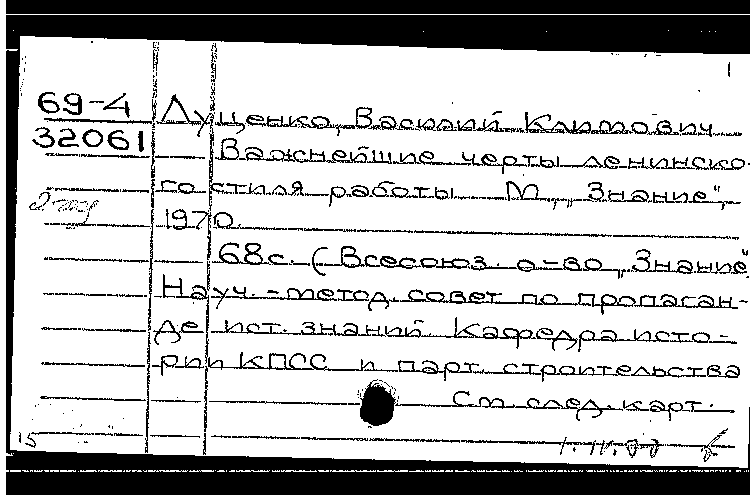 69-4
32061
Луценко, Василий Климович
Важнейшие черты ленинско-
го стиля работы М., „Знание",
1970.
68с. (Всесоюз. о-во „Знание"
Науч.-метод. совет по пропаган-
де ист. знаний. Кафедра исто-
рии КПСС и парт. строительства
См. след. карт.
15